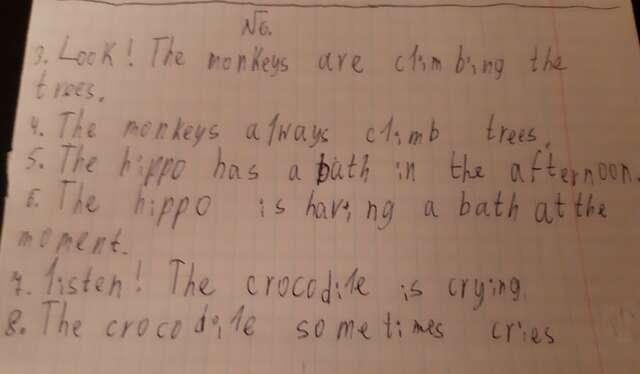 №6.
3. Look! The monkeys are climbing the
trees.
4. The monkeys always climb trees.
5. The hippo has a bath in the afternoon.
6. The hippo is having a bath at the
moment.
7. listen! The crocodile is crying.
8. The crocodile sometimes cries